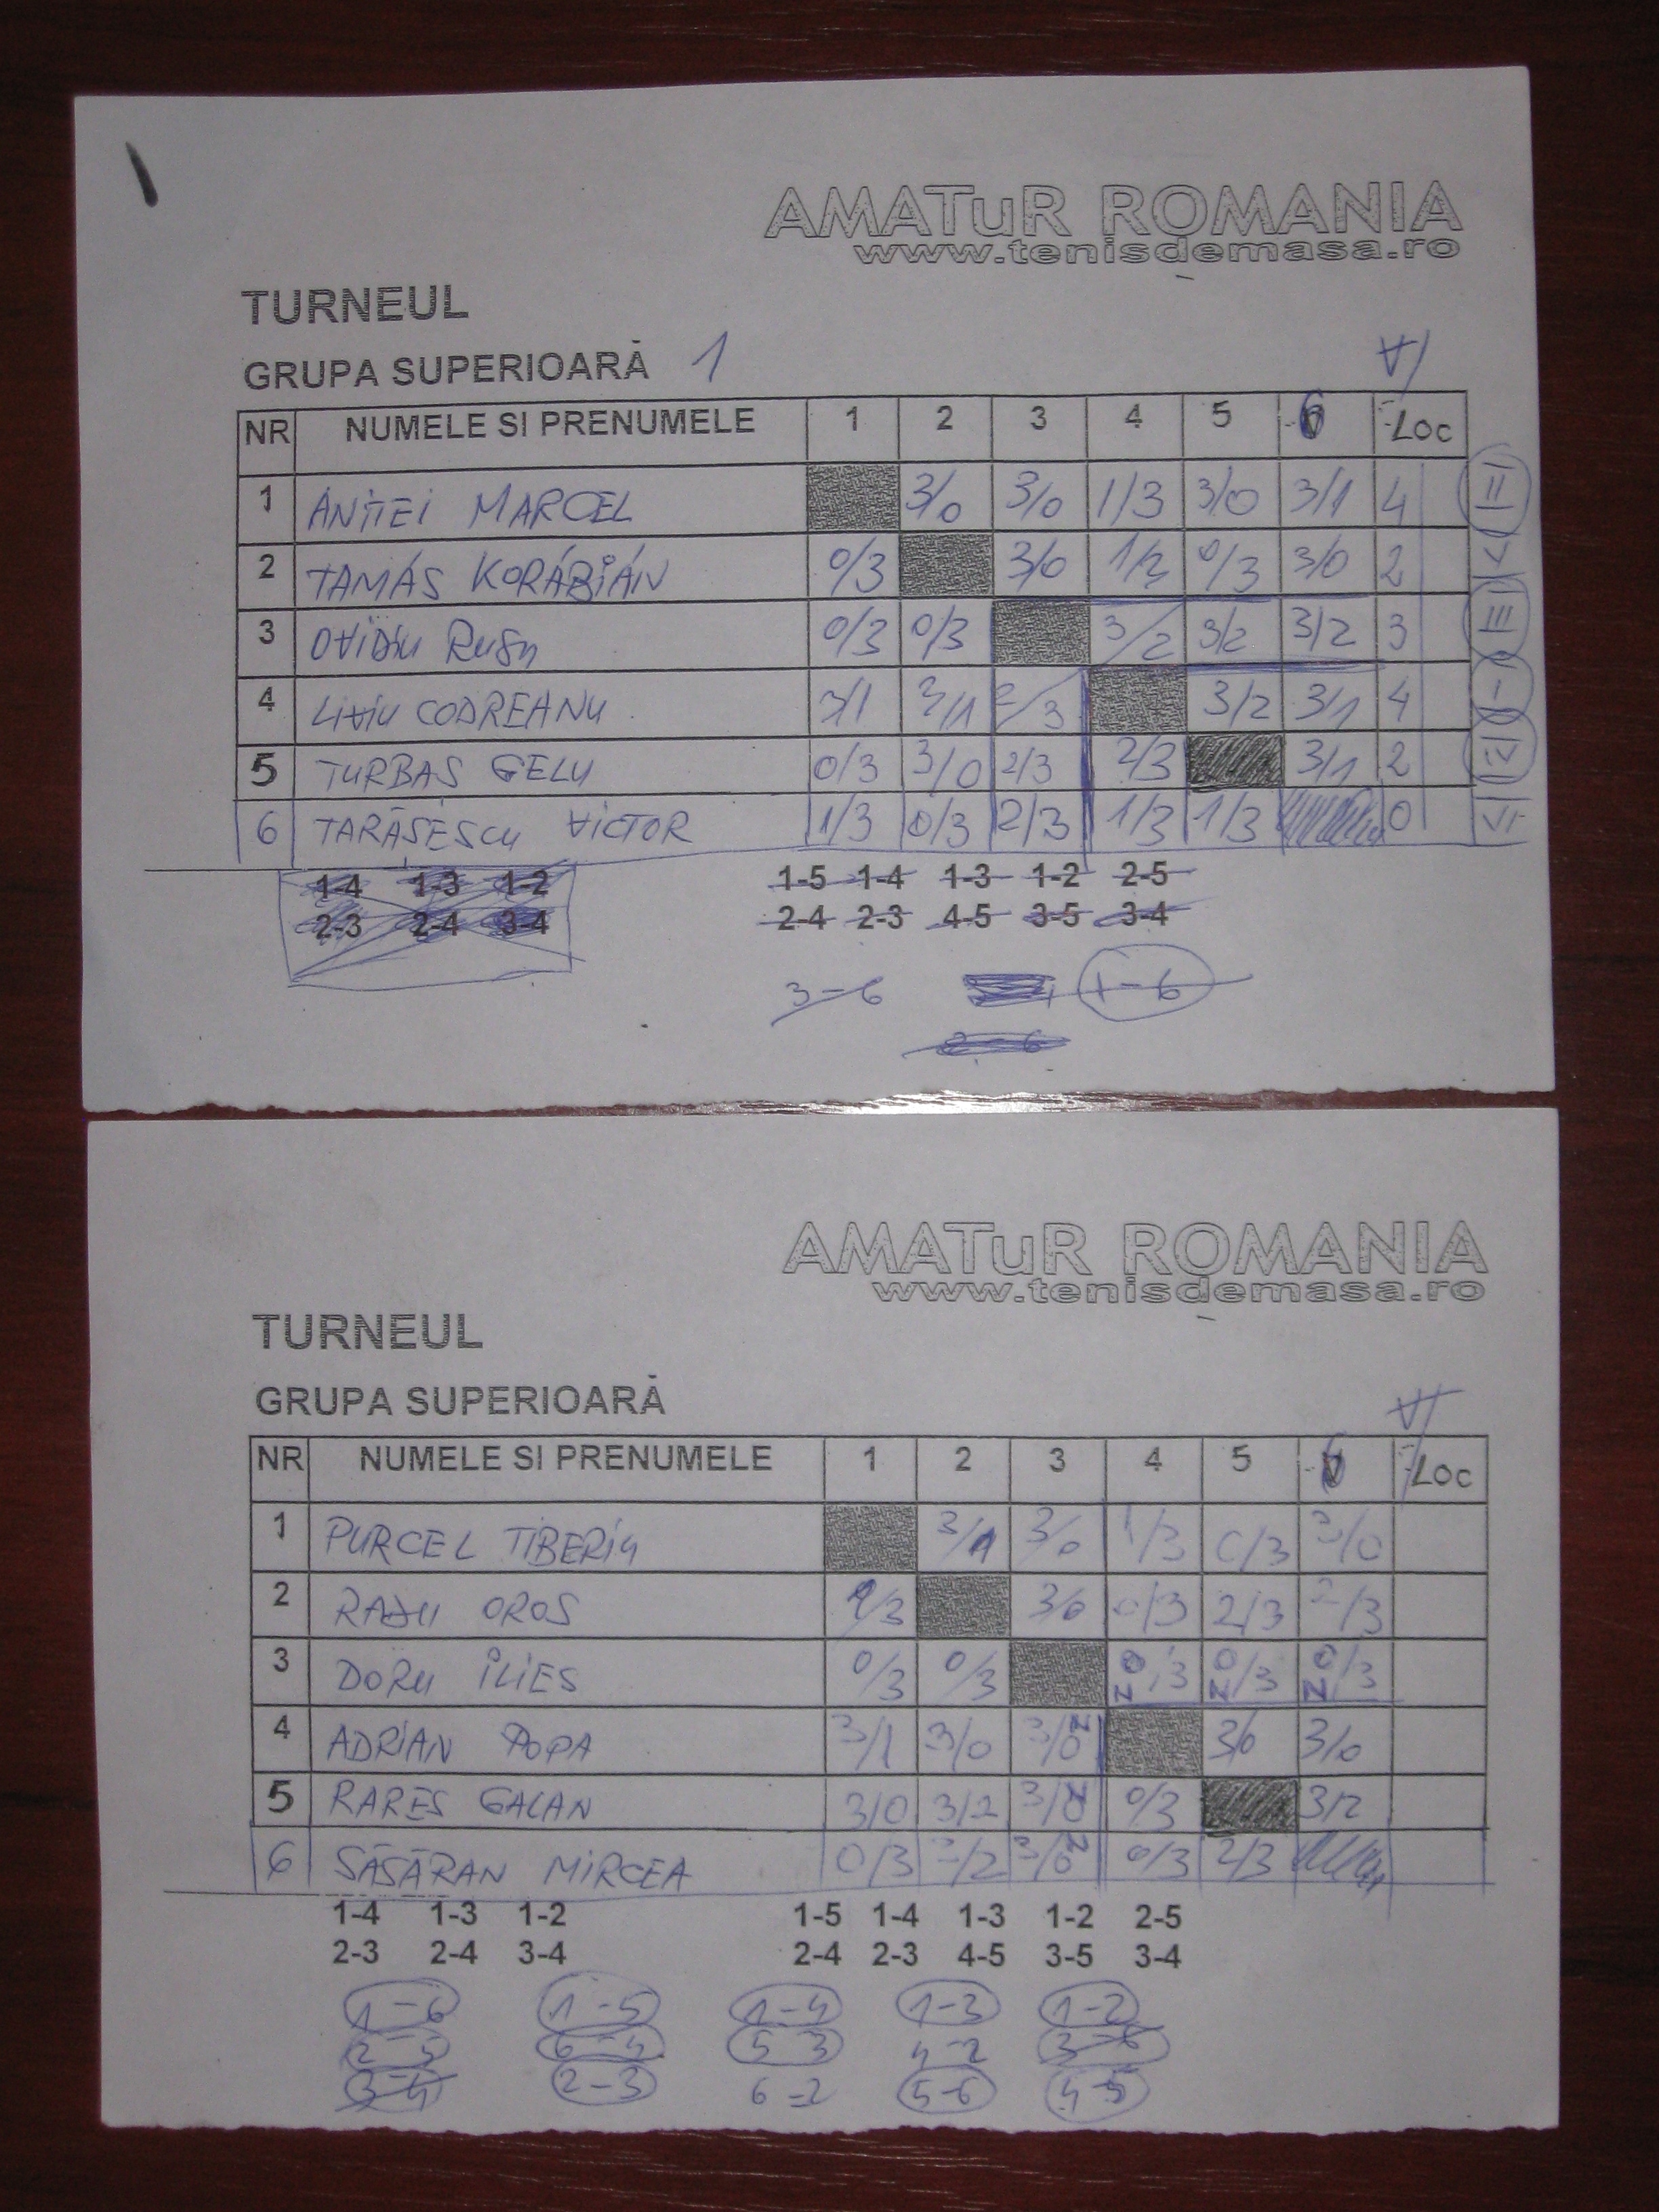 AMATuR ROMANIA
www.tenisdemasa.ro
TURNEUL
GRUPA SUPERIOARĂ 1
VI
NR NUMELE SI PRENUMELE 1 2 3 4 5 6 Loc
1 ANITEI MARCEL 3/0 3/0 1/3 3/0 3/1 4 II
2 TAMÁS KORÁBIÁN 0/3 3/0 1/3 0/3 3/0 2 V
3 OVIDIU RUSU 0/3 0/3 3/2 3/2 3/2 3 III
4 LIVIU CODREANU 3/1 3/1 2/3 3/2 3/1 4 I
5 TURBAS GELU 0/3 3/0 2/3 2/3 3/1 2 IV
6 TARĂSESCU VICTOR 1/3 0/3 2/3 1/3 1/3 0 VI
1-4 1-3 1-2 1-5 1-4 1-3 1-2 2-5
2-3 2-4 3-4 2-4 2-3 4-5 3-5 3-4
3-6 1-6
2-6
AMATuR ROMANIA
www.tenisdemasa.ro
TURNEUL
GRUPA SUPERIOARĂ
VI
NR NUMELE SI PRENUMELE 1 2 3 4 5 6 Loc
1 PURCEL TIBERIU 3/1 3/0 1/3 0/3 3/0
2 RADU OROS 1/3 3/0 0/3 2/3 2/3
3 DORU ILIES 0/3 0/3 0/3 N 0/3 N 0/3 N
4 ADRIAN POPA 3/1 3/0 3/0 N 3/0 3/0
5 RARES GALAN 3/0 3/2 3/0 N 0/3 3/2
6 SĂSĂRAN MIRCEA 0/3 3/2 3/0 N 0/3 2/3
1-4 1-3 1-2 1-5 1-4 1-3 1-2 2-5
2-3 2-4 3-4 2-4 2-3 4-5 3-5 3-4
1-6 1-5 1-4 1-3 1-2
2-5 6-4 5-3 4-2 3-6
3-4 2-3 6-2 5-6 4-5